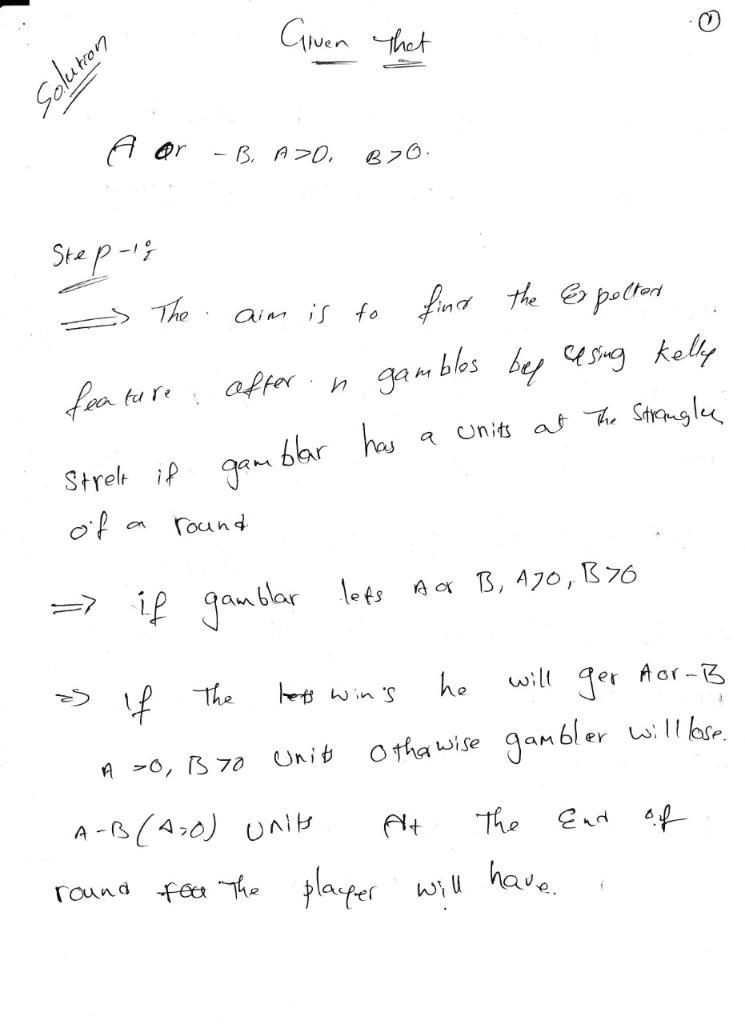 ①
Given that
Solution
A or - B, A>0, B>0.
Step-1:
⇒ The aim is to find the Expolted
feature after n gambles by using kelly
Strelt if gamblar has a units at The
of a round
⇒ if gamblar lets A or B, A>0, B>0
⇒ If The win's he will ger A or - B
A >0, B>0 Units Otherwise gambler will lose.
A-B (A>0) units At The End of
round The player will have.